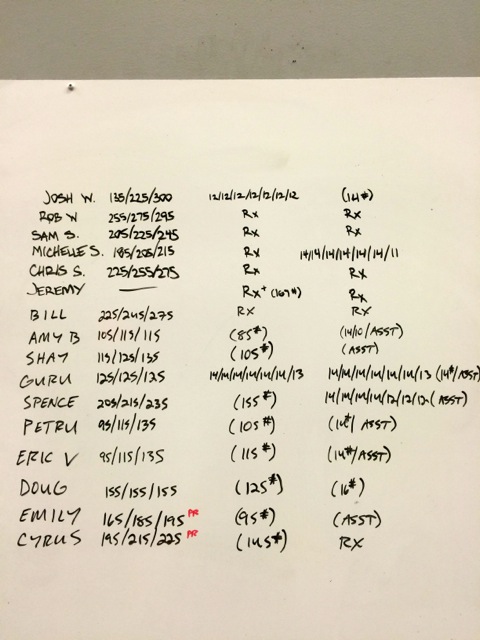 JOSH W. 135/225/300 12/12/12/12/12/12/12 (14#)
ROB W 255/275/295 Rx Rx
SAM S. 205/225/245 Rx Rx
MICHELLE S. 185/205/215 Rx 14/14/14/14/14/14/14/11
CHRIS S. 225/255/275 Rx Rx
JEREMY — Rx+ (169#) Rx
BILL 225/245/275 RX RX
AMY B 105/115/115 (85#) (14/10/ASST)
SHAY 115/125/135 (105#) (ASST)
GURU 125/125/125 14/14/14/14/14/14/13 14/14/14/14/14/14/13 (14#/ASST)
SPENCE 205/215/235 (155#) 14/14/14/14/12/12/12 (ASST)
PETRU 95/115/135 (105#) (14#/ASST)
ERIC V 95/115/135 (115#) (14#/ASST)
DOUG 155/155/155 (125#) (16#)
EMILY 165/185/195 PR (95#) (ASST)
CYRUS 195/215/225 PR (145#) RX